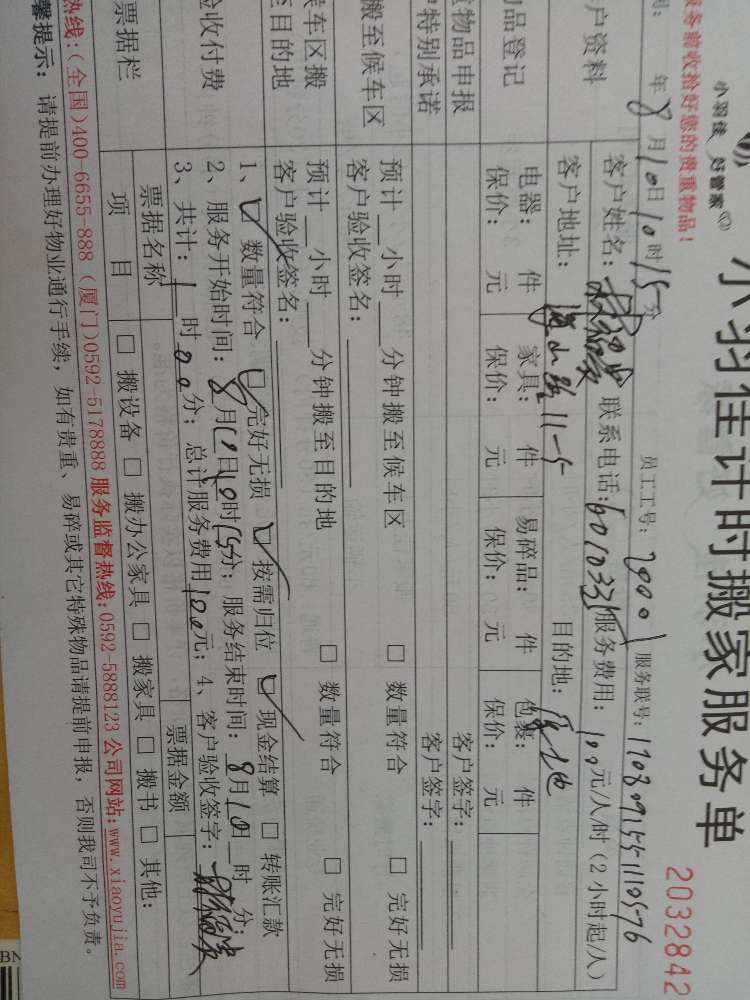 小羽佳 好管家
小羽佳计时搬家服务单
2032842
服务前收拾好您的贵重物品!
员工工号: 20001 服务联号: 1708091551110576
年8月10日10时15分
户资料
客户姓名: 联系电话: 6010331 服务费用: 100元/人/时(2小时起/人)
客户地址: 海山路11-5 目的地:
品登记
电器: 件 家具: 件 易碎品: 件 包裹: 件
保价: 元 保价: 元 保价: 元 保价: 元
物品申报
客户签字:
特别承诺
客户签字:
搬至候车区
预计 小时 分钟搬至候车区 □ 数量符合 □ 完好无损
客户验收签名:
候车区搬
至目的地
预计 小时 分钟搬至目的地 □ 数量符合 □ 完好无损
客户验收签名:
验收付费
1、☑ 数量符合 ☑ 完好无损 ☑ 按需归位 ☑ 现金结算 □ 转账汇款
2、服务开始时间: 8月10日10时15分; 服务结束时间: 8月10日 时 分;
3、共计: 1时00分; 总计服务费用100元; 4、客户验收签字:
票据栏
票据名称 票据金额
项 目 □ 搬设备 □ 搬办公家具 □ 搬家具 □ 搬书 □ 其他:
热线:(全国)400-6655-888 (厦门)0592-5178888 服务监督热线:0592-5888123 公司网站:www.xiaoyujia.com
馨提示: 请提前办理好物业通行手续,如有贵重、易碎或其它特殊物品请提前申报,否则我司不予负责。
BN